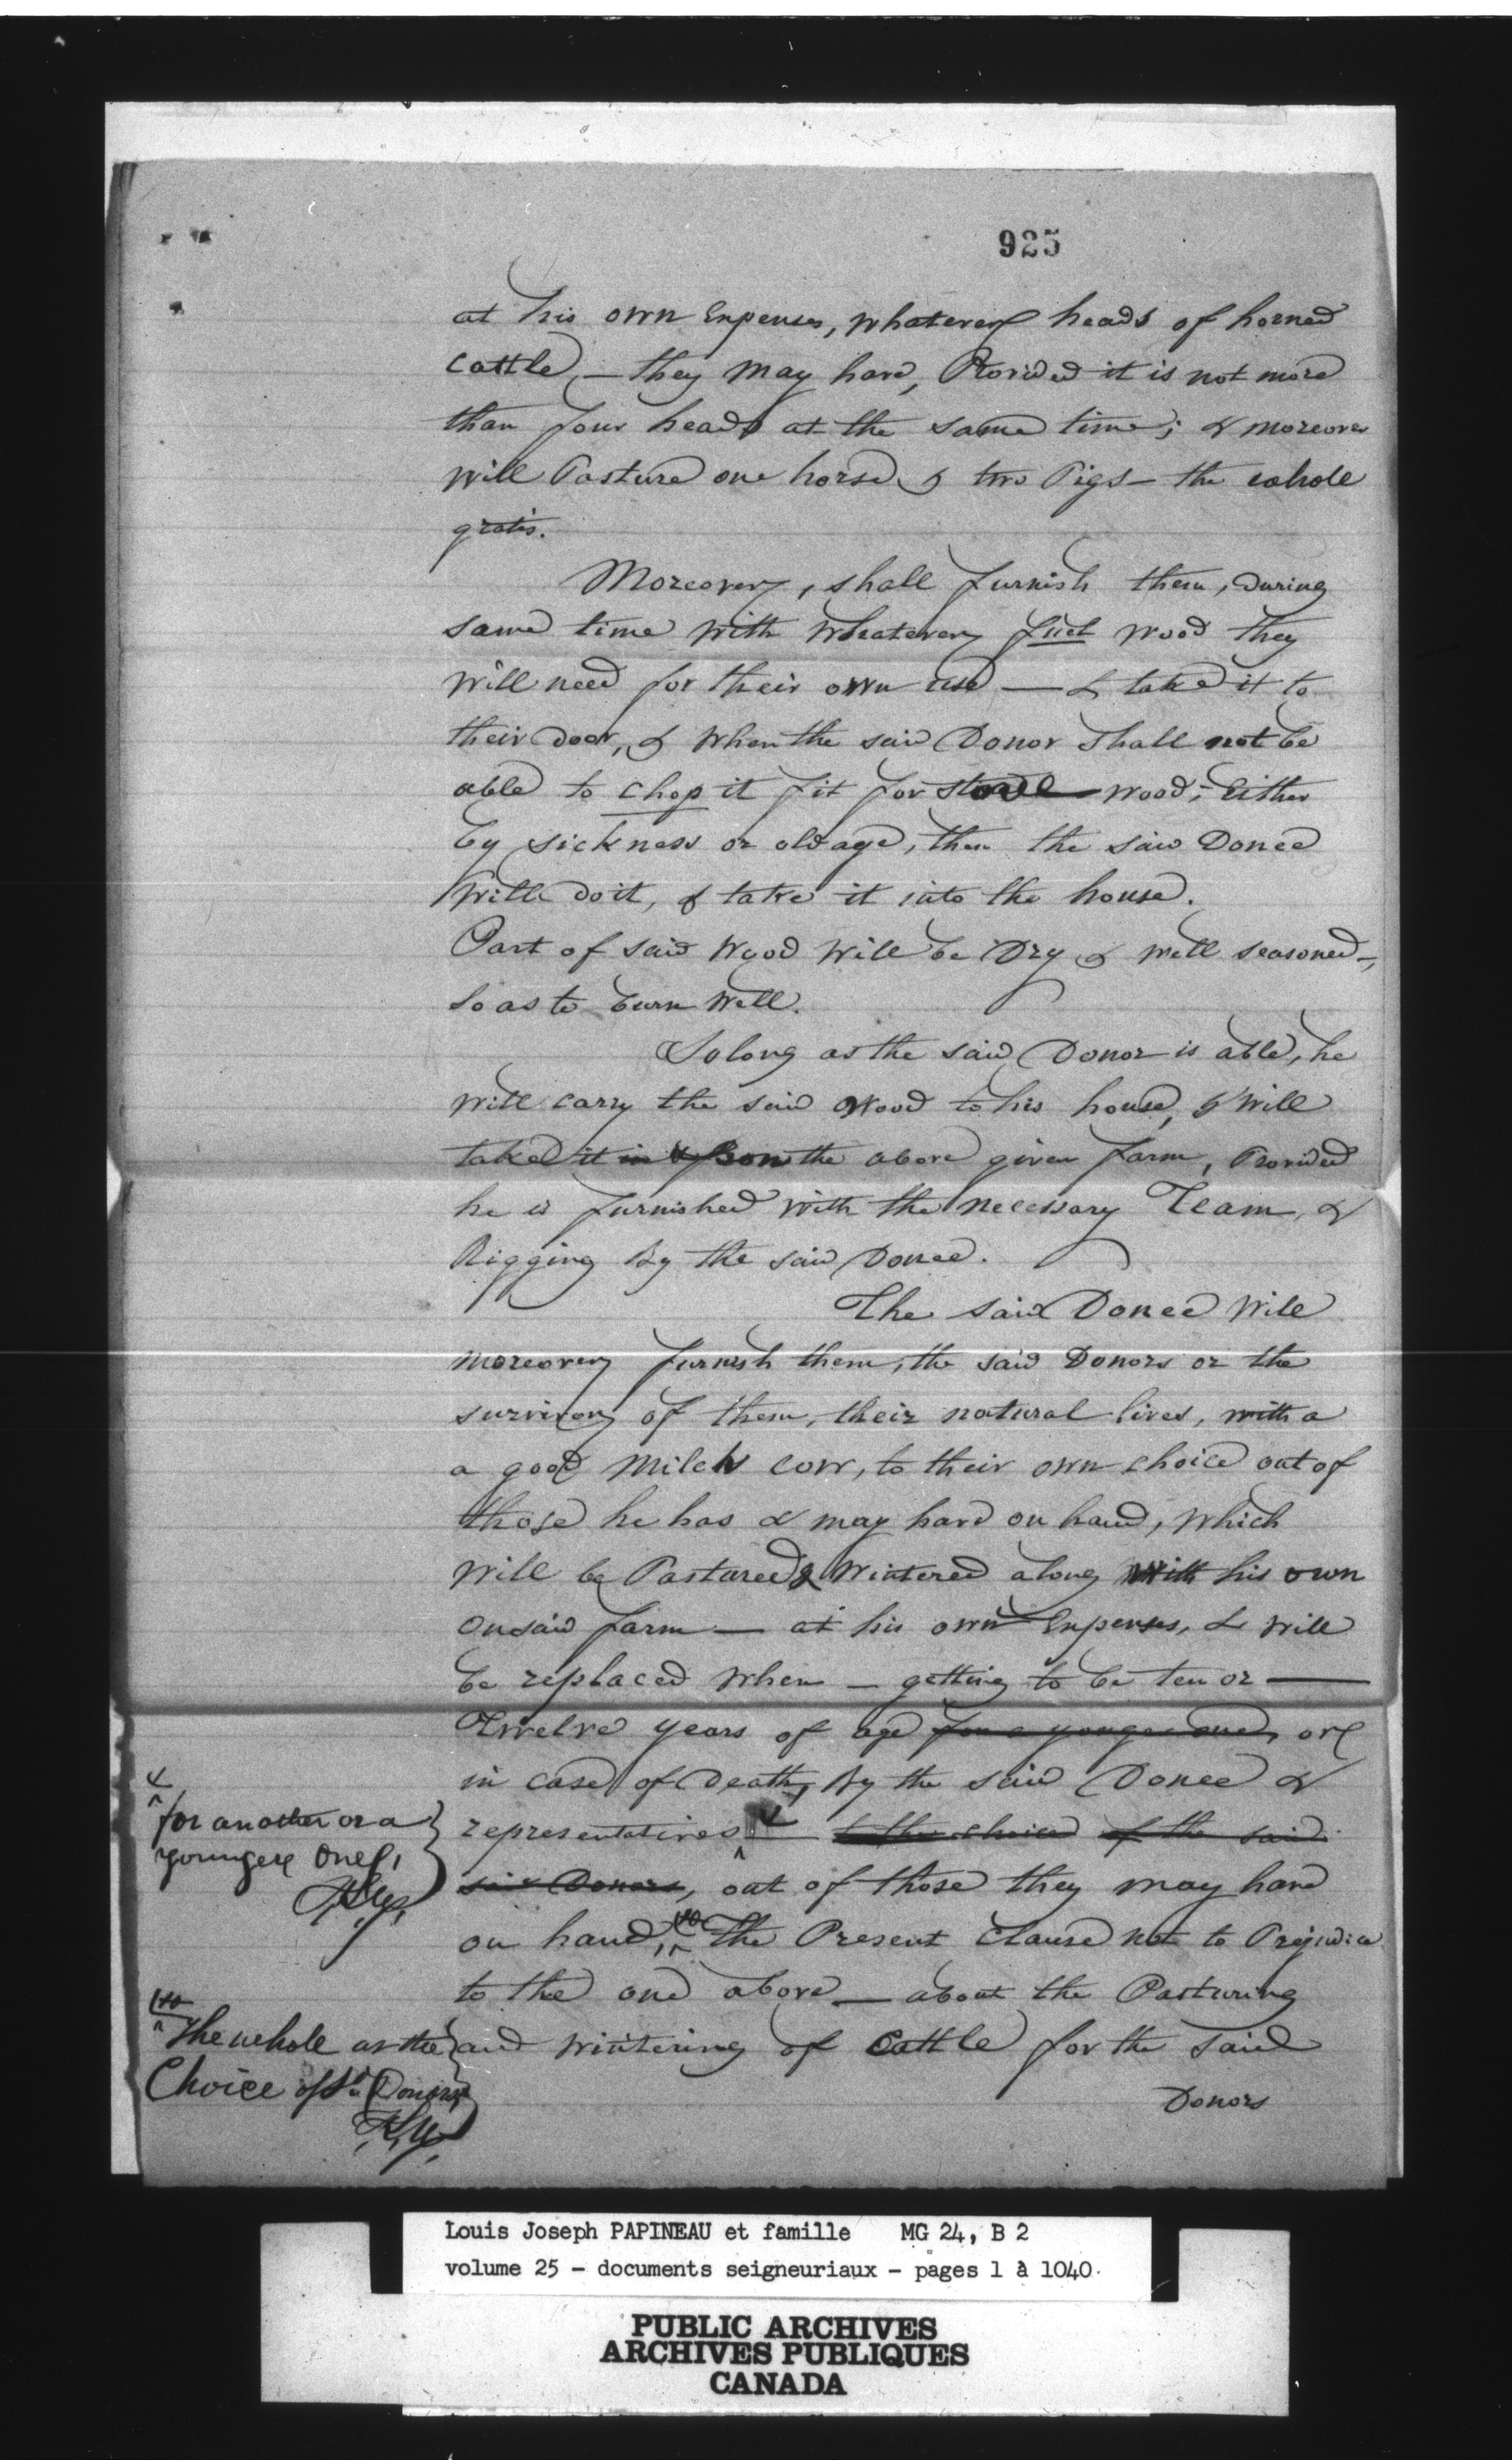 925
at his own Expenses, whatever heads of horned
Cattle, – they may have, Provided it is not more
than four heads at the same time; & moreover
will Pasture one horse & two Pigs – the whole
gratis.
Moreover, shall furnish them, during
same time with whatever fuel wood they
will need for their own use — & take it to
their door, & when the said Donor shall not be
able to chop it fit for stove wood; Either
by sickness or old age, then the said Donee
will do it, & take it into the house.
Part of said Wood will be Dry & well seasoned –,
so as to burn well.
So long as the said Donor is able, he
will carry the said wood to his house, & will
take it on the above given farm, Provided
he is furnished with the necessary Team, &
Rigging by the said Donee.
The said Donee will
moreover furnish them, the said Donors or the
survivor of them, their natural lives, with a
a good milch cow, to their own choice out of
those he has & may have on hand, which
will be Pastured & Wintered along with his own
on said farm — at his own Expenses, & will
be replaced when — getting to be ten or —
Twelve years of age for a younger one, or
in case of Death, by the said Donee &
representatives to the choice of the said
said Donors, out of those they may have
on hand, The Present Clause not to Prejudice
to the one above — about the Pasturing
and wintering of Cattle for the said
Donors
for another or a
younger One,
The whole at the
Choice of sd. Donors,
Louis Joseph PAPINEAU et famille MG 24, B 2
volume 25 – documents seigneuriaux – pages 1 à 1040.
PUBLIC ARCHIVES
ARCHIVES PUBLIQUES
CANADA